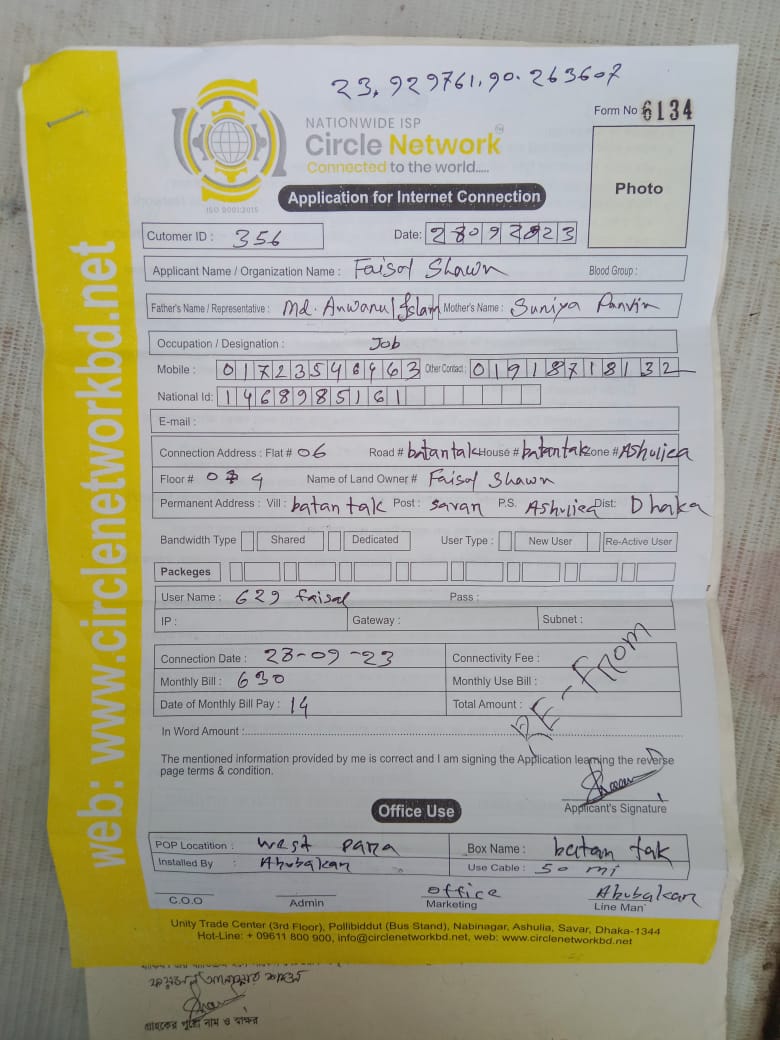 23.929761,90.263607
NATIONWIDE ISP
Form No 6134
Circle Network
Connected to the world.....
ISO 9001:2015
Photo
Application for Internet Connection
Cutomer ID : 356 Date:
Applicant Name / Organization Name : Faisal Shawn Blood Group :
Father's Name / Representative : Md. Anwarul Islam Mother's Name : Suniya Parvin
Occupation / Designation : Job
Mobile : Other Contact : 01918718132
National Id: 1468985161
E-mail :
Connection Address : Flat # 06 Road # batantak House # batantak Zone # Ashuliea
Floor # 4 Name of Land Owner # Faisal Shawn
Permanent Address : Vill : batan tak Post : savar P.S. Ashuliea Dist: Dhaka
Bandwidth Type Shared Dedicated User Type : New User Re-Active User
Packeges
User Name : 629 faisal Pass :
IP : Gateway : Subnet :
Connection Date : 28-09-23 Connectivity Fee :
Monthly Bill : 630 Monthly Use Bill :
Date of Monthly Bill Pay : 14 Total Amount :
RE-FROM
In Word Amount :
The mentioned information provided by me is correct and I am signing the Application learning the reverse
page terms & condition.
Applicant's Signature
Office Use
POP Locatition : west para Box Name : batan tak
Installed By : Abubakar Use Cable : 50 mi
office Abubakar
C.O.O Admin Marketing Line Man
Unity Trade Center (3rd Floor), Pollibiddut (Bus Stand), Nabinagar, Ashulia, Savar, Dhaka-1344
Hot-Line: + 09611 800 900, info@circlenetworkbd.net, web: www.circlenetworkbd.net
web: www.circlenetworkbd.net
গ্রাহকের পুরো নাম ও স্বাক্ষর